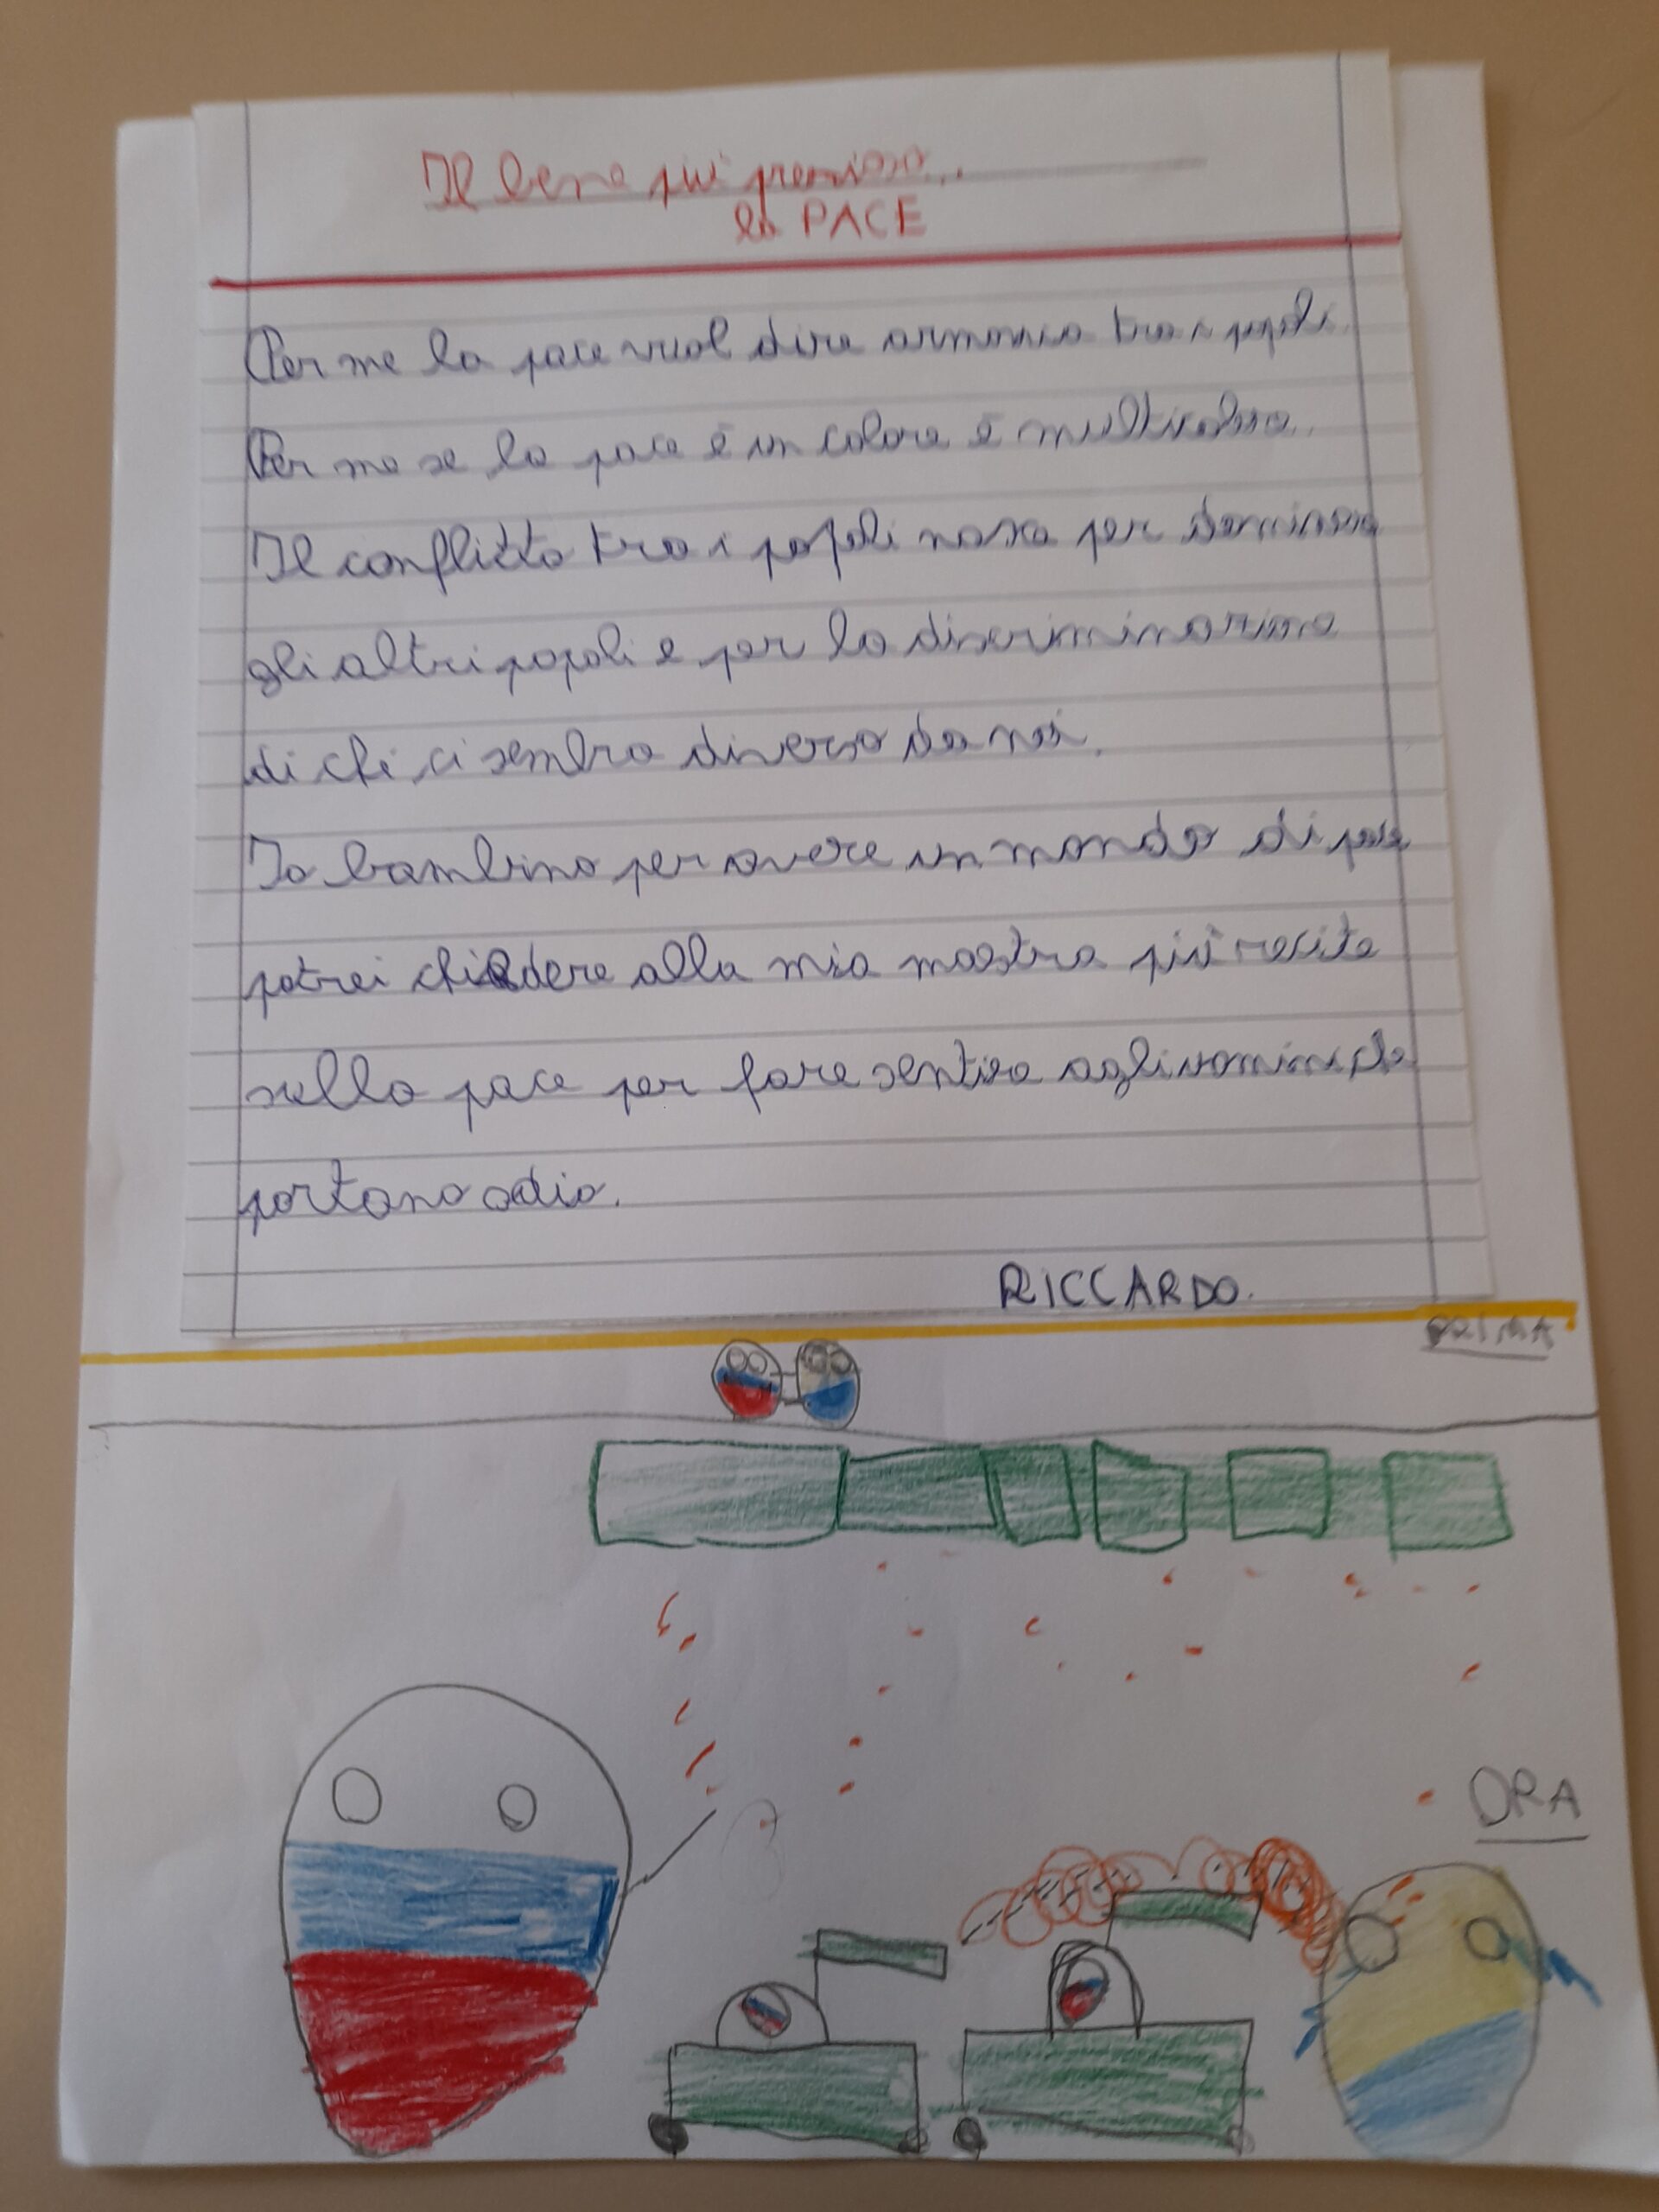 Il bene più prezioso...
la PACE
Per me la pace vuol dire armonia tra i popoli.
Per me se la pace è un colore è multicolore.
Il conflitto tra i popoli nasce per dominare
gli altri popoli e per la discriminazione
di chi ci sembra diverso da noi.
Io bambino per avere un mondo di pace
potrei chiedere alla mia maestra più recite
sulla pace per fare sentire agli uomini che
portano odio.
RICCARDO.
PRIMA
ORA